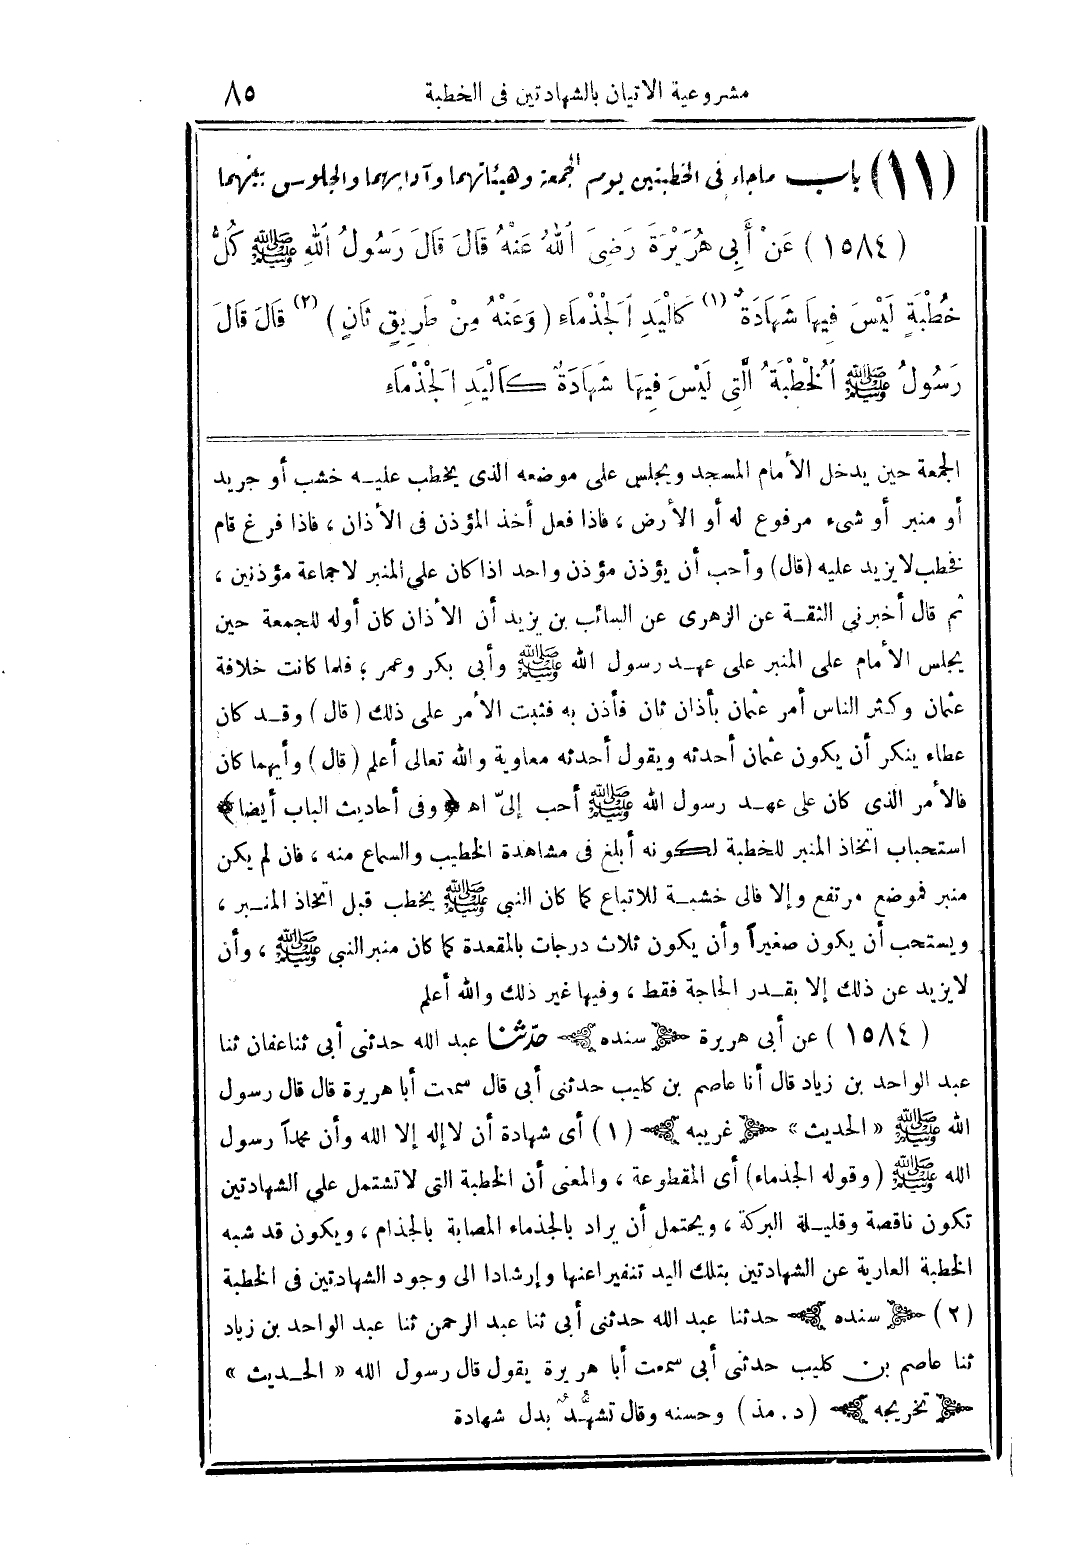 مشروعية الاتيان بالشهادتين فى الخطبة ٨٥
(١١) باب ماجاء فى الخطبتين يوم الجمعة وهيئاتهما وآدابهما والجلوس بينهما
(١٥٨٤) عَنْ أَبِى هُرَيْرَةَ رَضِىَ اللهُ عَنْهُ قَالَ قَالَ رَسُولُ اللهِ ﷺ كُلُّ
خُطْبَةٍ لَيْسَ فِيهَا شَهَادَةٌ (١) كَالْيَدِ الْجَذْمَاءِ (وَعَنْهُ مِنْ طَرِيقٍ ثَانٍ) (٢) قَالَ قَالَ
رَسُولُ ﷺ الْخُطْبَةُ الَّتِى لَيْسَ فِيهَا شَهَادَةٌ كَالْيَدِ الْجَذْمَاءِ
الجمعة حين يدخل الأمام المسجد ويجلس على موضعه الذى يخطب عليه خشب أو جريد
أو منبر أو شىء مرفوع له أو الأرض ، فاذا فعل أخذ المؤذن فى الأذان ، فاذا فرغ قام
فخطب لا يزيد عليه (قال) وأحب أن يؤذن مؤذن واحد اذا كان على المنبر لا جماعة مؤذنين ،
ثم قال أخبرني الثقة عن الزهرى عن السائب بن يزيد أن الأذان كان أوله للجمعة حين
يجلس الأمام على المنبر على عهد رسول الله ﷺ وأبى بكر وعمر ؛ فلما كانت خلافة
عثمان وكثر الناس أمر عثمان بأذان ثان فأذن به فثبت الأمر على ذلك (قال) وقد كان
عطاء ينكر أن يكون عثمان أحدثه ويقول أحدثه معاوية والله تعالى أعلم (قال) وأيهما كان
فالأمر الذى كان على عهد رسول الله ﷺ أحب إلىّ اه ﴿وفى أحاديث الباب أيضا﴾
استحباب اتخاذ المنبر للخطبة لكونه أبلغ فى مشاهدة الخطيب والسماع منه ، فان لم يكن
منبر فموضع مرتفع وإلا فالى خشبة للاتباع كما كان النبي ﷺ يخطب قبل اتخاذ المنبر ،
ويستحب أن يكون صغيراً وأن يكون ثلاث درجات بالمقعدة كما كان منبر النبي ﷺ ، وأن
لا يزيد عن ذلك إلا بقدر الحاجة فقط ، وفيها غير ذلك والله أعلم
(١٥٨٤) عن أبى هريرة ﴿سنده﴾ حدّثنا عبد الله حدثنى أبى ثنا عفان ثنا
عبد الواحد بن زياد قال أنا عاصم بن كليب حدثنى أبى قال سمعت أبا هريرة قال قال رسول
الله ﷺ « الحديث » ﴿غريبه﴾ (١) أى شهادة أن لا إله إلا الله وأن محمداً رسول
الله ﷺ (وقوله الجذماء) أى المقطوعة ، والمعنى أن الخطبة التى لا تشتمل على الشهادتين
تكون ناقصة وقليلة البركة ، ويحتمل أن يراد بالجذماء المصابة بالجذام ، ويكون قد شبه
الخطبة العارية عن الشهادتين بتلك اليد تنفيرا عنها وإرشادا الى وجود الشهادتين فى الخطبة
(٢) ﴿سنده﴾ حدثنا عبد الله حدثنى أبى ثنا عبد الرحمن ثنا عبد الواحد بن زياد
ثنا عاصم بن كليب حدثنى أبى سمعت أبا هريرة يقول قال رسول الله « الحديث »
﴿تخريجه﴾ (د . مذ) وحسنه وقال تشهُّدٌ بدل شهادة